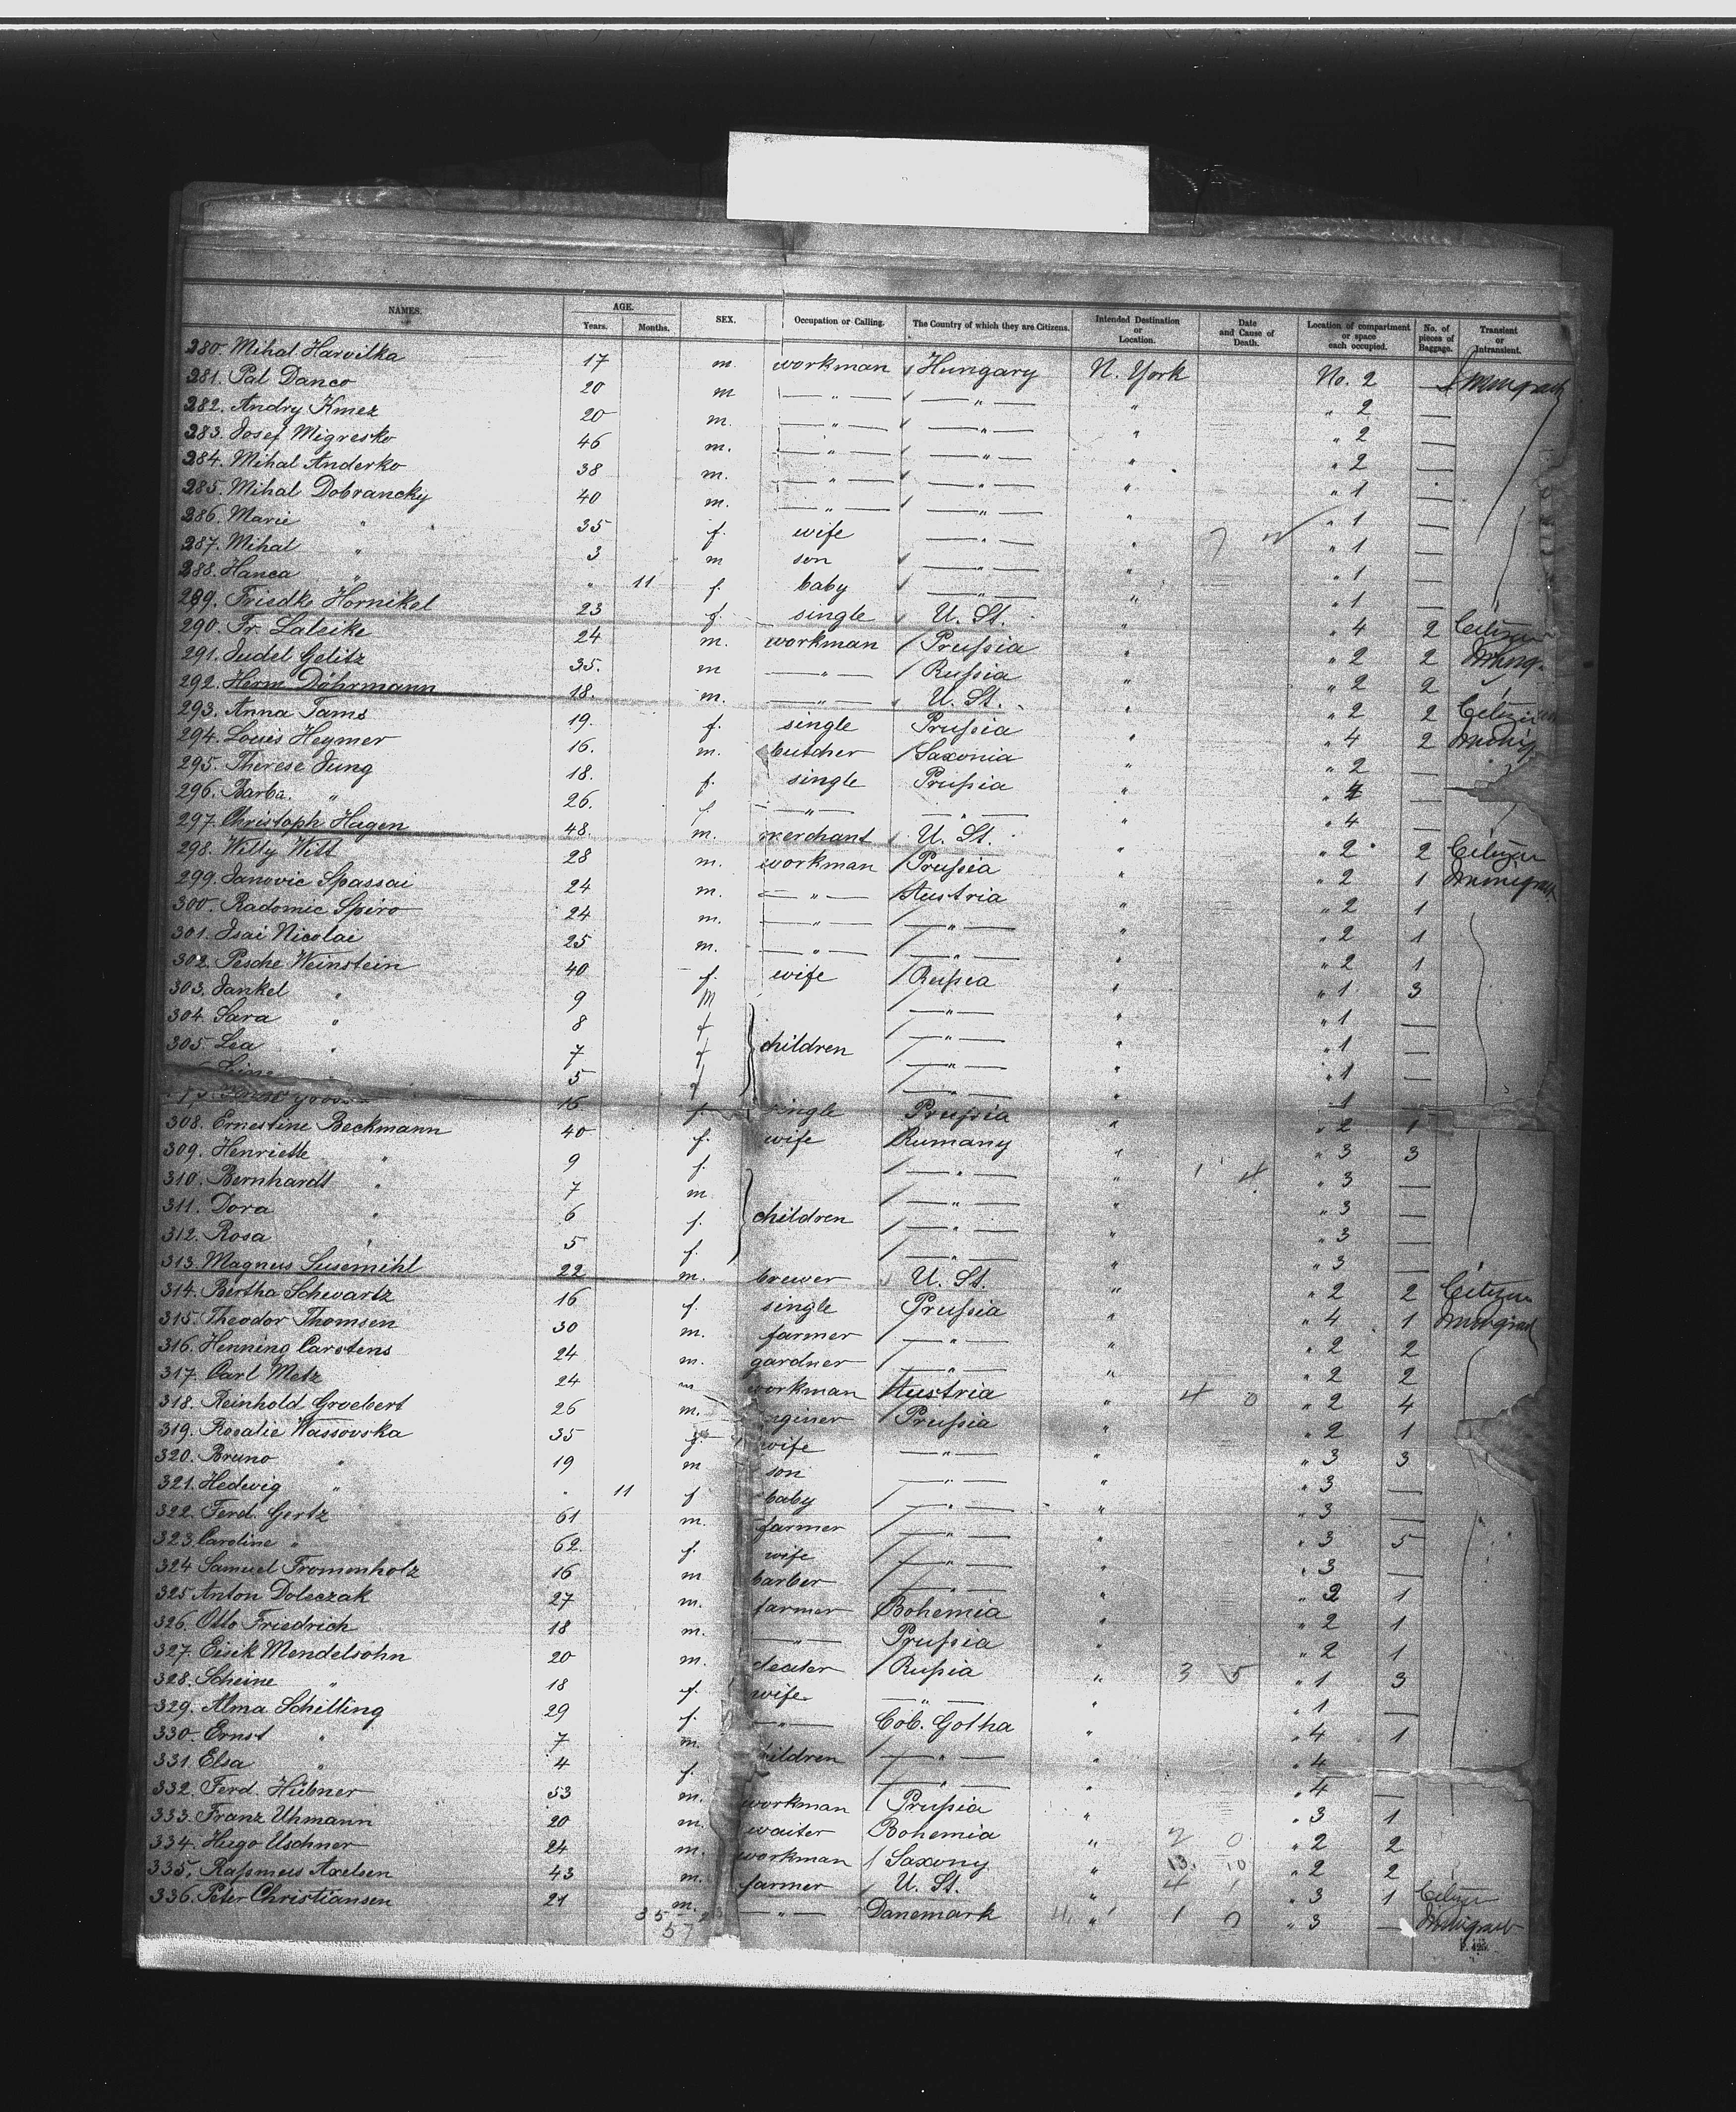 NAMES. AGE. SEX. Occupation or Calling. The Country of which they are Citizens. Intended Destination or Location. Date and Cause of Death. Location of compartment or space each occupied. No. of pieces of Baggage. Transient or Intransient.
Years. Months.
280. Mihal Harvilka 17 m. workman Hungary N. York No. 2 — Immigrant
281. Pal Danco 20 m — " — — " — " " 2 —
282. Andry Kmez 20 m. — " — — " — " " 2 —
283. Josef Migresko 46 m. — " — — " — " " 2 —
284. Mihal Anderko 38 m. — " — — " — " " 1 —
285. Mihal Dobrancky 40 m. — " — — " — " " 1 —
286. Marie " 35 f. wife — " — " " 1 —
287. Mihal " 3 m son — " — " " 1 —
288. Hanca " " 11 f. baby — " — " " 1 —
289. Friedke Hornikel 23 f. single U. St. " " 4 2 Citizen
290. Fr. Latzike 24 m. workman Prussia " " 2 2 Immig.
291. Judel Gelitz 35. m — " — Russia " " 2 2
292. Herm. Döhrmann 18. m. — " — U. St. " " 2 2 Citizen
293. Anna Tams 19. f. single Prussia " " 4 2 Immig
294. Louis Heymer 16. m. butcher Saxonia " " 2 —
295. Therese Jung 18. f. single Prussia " " 4 —
296. Barba. " 26. f — " — — " — " " 4 —
297. Christoph Hagen 48. m. merchant U. St. " " 2 2 Citizen
298. Willy Witt 28 m. workman Prussia " " 2 1 Immigrant
299. Janovic Spassai 24 m. — " — Austria " " 2 1
300. Radomic Spiro 24 m. — " — — " — " " 2 1
301. Isai Nicolai 25 m. — " — — " — " " 2 1
302. Pesche Weinstein 40 f. wife Russia " " 1 3
303. Jankel " 9 m — " — " " 1 —
304. Sara " 8 f children — " — " " 1 —
305. Lea " 7 f — " — " " 1 —
Line 5 f — " — " 1 —
16 f. single Prussia " " 2 1
308. Ernestine Beckmann 40 f. wife Rumany " " 3 3
309. Henriette " 9 f. — " — " 1 4 " 3 —
310. Bernhardt " 7 m. — " — " " 3 —
311. Dora " 6 f. children — " — " " 3 —
312. Rosa " 5 f. — " — " " 3 —
313. Magnus Susemihl 22 m. brewer U. St. " " 2 2 Citizen
314. Bertha Schwartz 16 f. single Prussia " " 4 1 Immigrant
315. Theodor Thomsen 30 m. farmer — " — " " 2 2
316. Henning Carstens 24 m. gardner — " — " " 2 2
317. Carl Metz 24 m workman Austria " 4 0 " 2 4
318. Reinhold Groebert 26 m. nginer Prussia " " 2 1
319. Rosalie Wassovska 35 f. wife — " — " " 3 3
320. Bruno " 19 m son — " — " " 3 —
321. Hedwig " . 11 f baby — " — " " 3 —
322. Ferd. Gertz 61 m. farmer — " — " " 3 5
323. Caroline " 62. f. wife — " — " " 3 —
324 Samuel Frommholz 16 m barber — " — " " 2 1
325 Anton Doleczak 27 m. farmer Bohemia " " 2 1
326. Otto Friedrich 18 m. — " — Prussia " " 2 1
327. Eisik Mendelsohn 20 m. dealer Russia " 3 5 " 1 3
328. Scheine " 18 f. wife — " — " " 1 —
329. Alma Schilling 29 f. — " — Cob. Gotha " " 4 1
330. Ernst " 7 m. children — " — " " 4
331. Elsa " 4 f. — " — " " 4 —
332. Ferd. Hübner 53 m. workman Prussia " " 3 1
333. Franz Uhmann 20 m. waiter Bohemia " 2 0 " 2 2
334. Hugo Uschner 24 m. workman Saxony " 13. 10 " 2 2
335. Rassmus Axelsen 43 m. farmer U. St. " 4 1 " 3 1 Citizen
336. Peter Christiansen 21 m. — " — Danemark " 1 0 " 3 — Immigrant
35
57